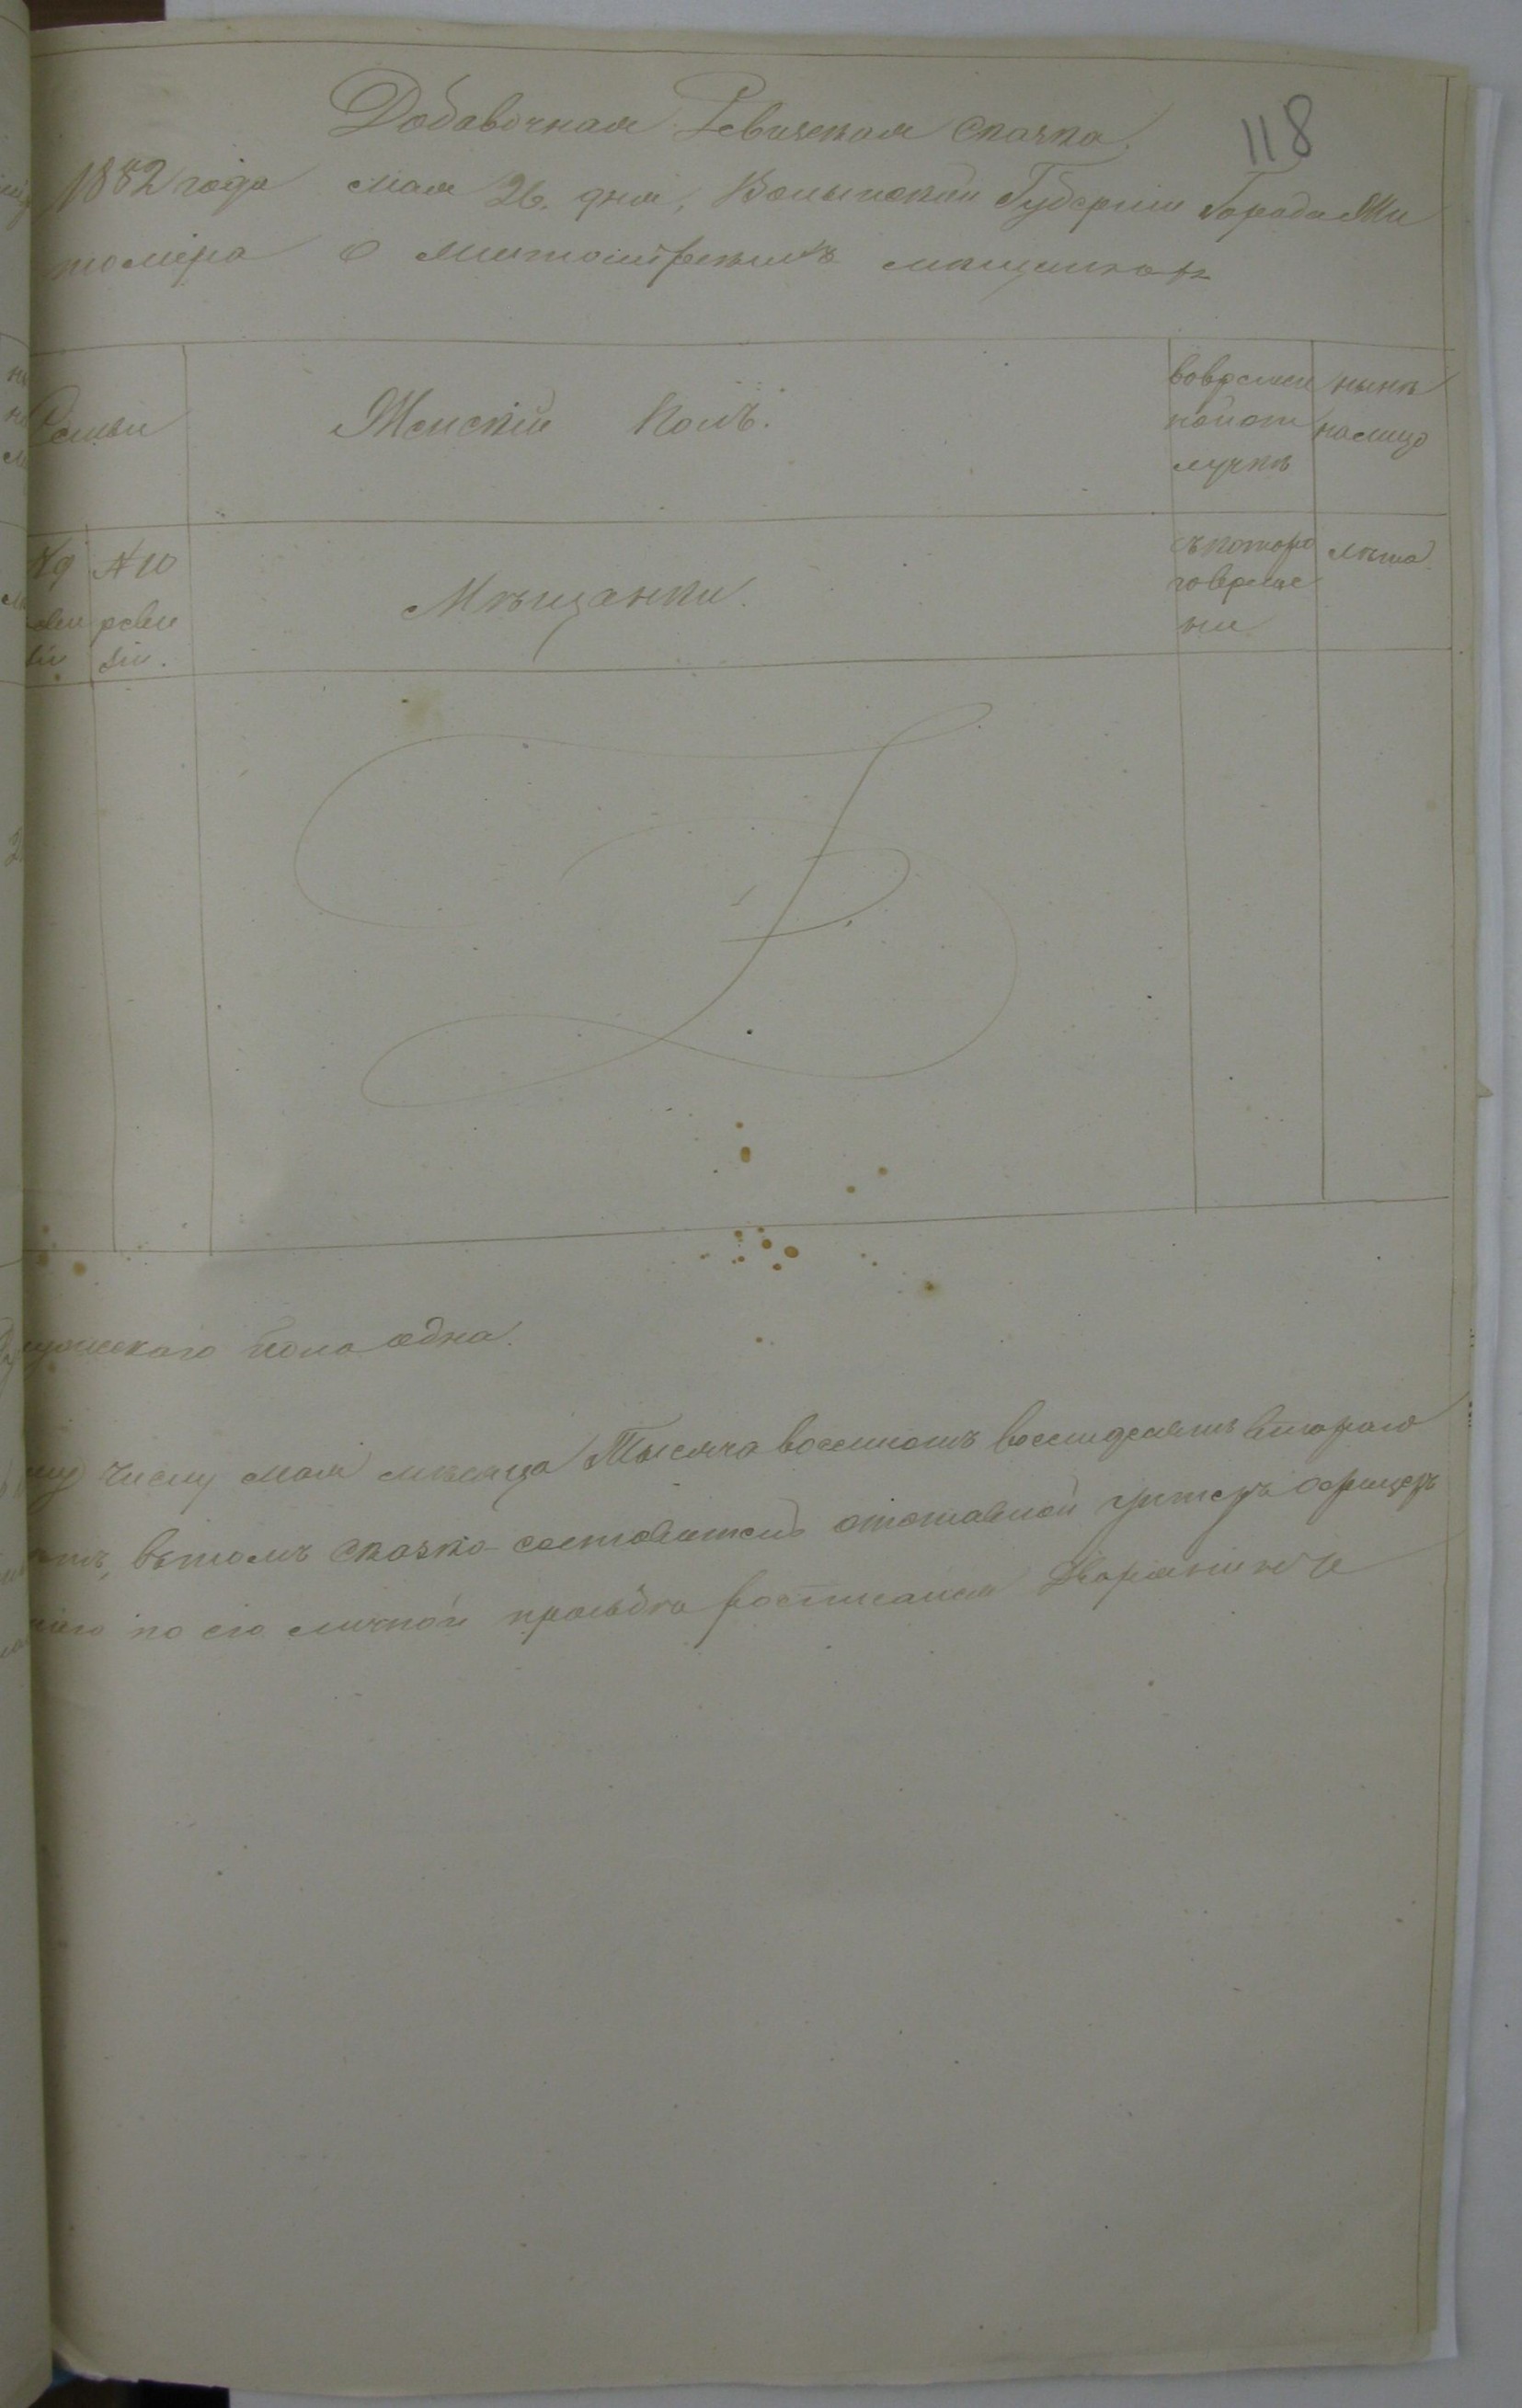 118
Добавочная Ревизская Сказка.
1882 года мая 26. дня, Волынской Губернiи Города Жи
томiра О Житомiрскихъ мещанкахъ
Семьи
Женскiй Полъ.
вовремен
ной от
лучкѣ
нынѣ
налицо
№ 9
реви
зiи
№ 10
реви
зiи.
Мѣщанки.
съ которо
го време
ни
лѣта
мужескаго пола одна.
числу мая мѣсяца Тысяча восемсотъ восемдесятъ втораго
вътомъ сказко-составитель отставной унтеръ офицеръ
по его личной прозьбѣ росписался Дворянинъ